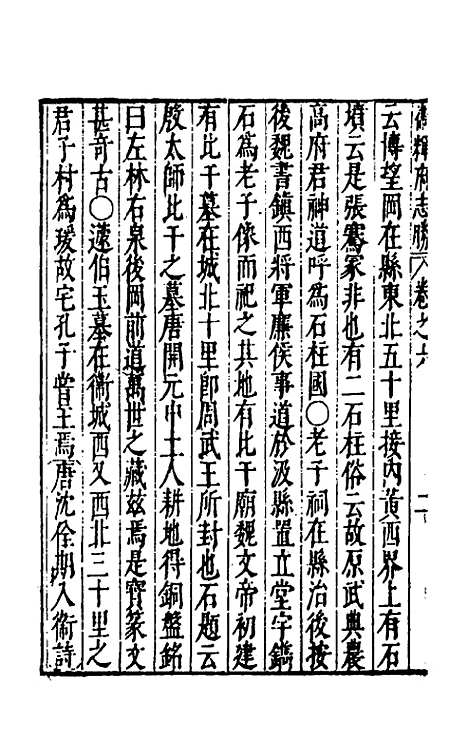 衛輝府志勝 卷之六
云博望岡在縣東北五十里接內黃西界上有石
墳云是張騫冢非也有二石柱俗云故原武典農
高府君神道呼爲石柱國〇老子祠在縣治後按
後魏書鎮西將軍廉侯事道於汲縣置立堂宇鐫
石爲老子像而祀之其地有比干廟魏文帝初建
有比干墓在城北十里卽周武王所封也石題云
殷太師比干之墓唐開元中土人耕地得銅盤銘
曰左林右泉後岡前道萬世之藏玆焉是寳篆文
甚竒古〇蘧伯玉墓在衞城西又西北三十里之
君子村爲瑗故宅孔子嘗主焉唐沈佺期入衞詩